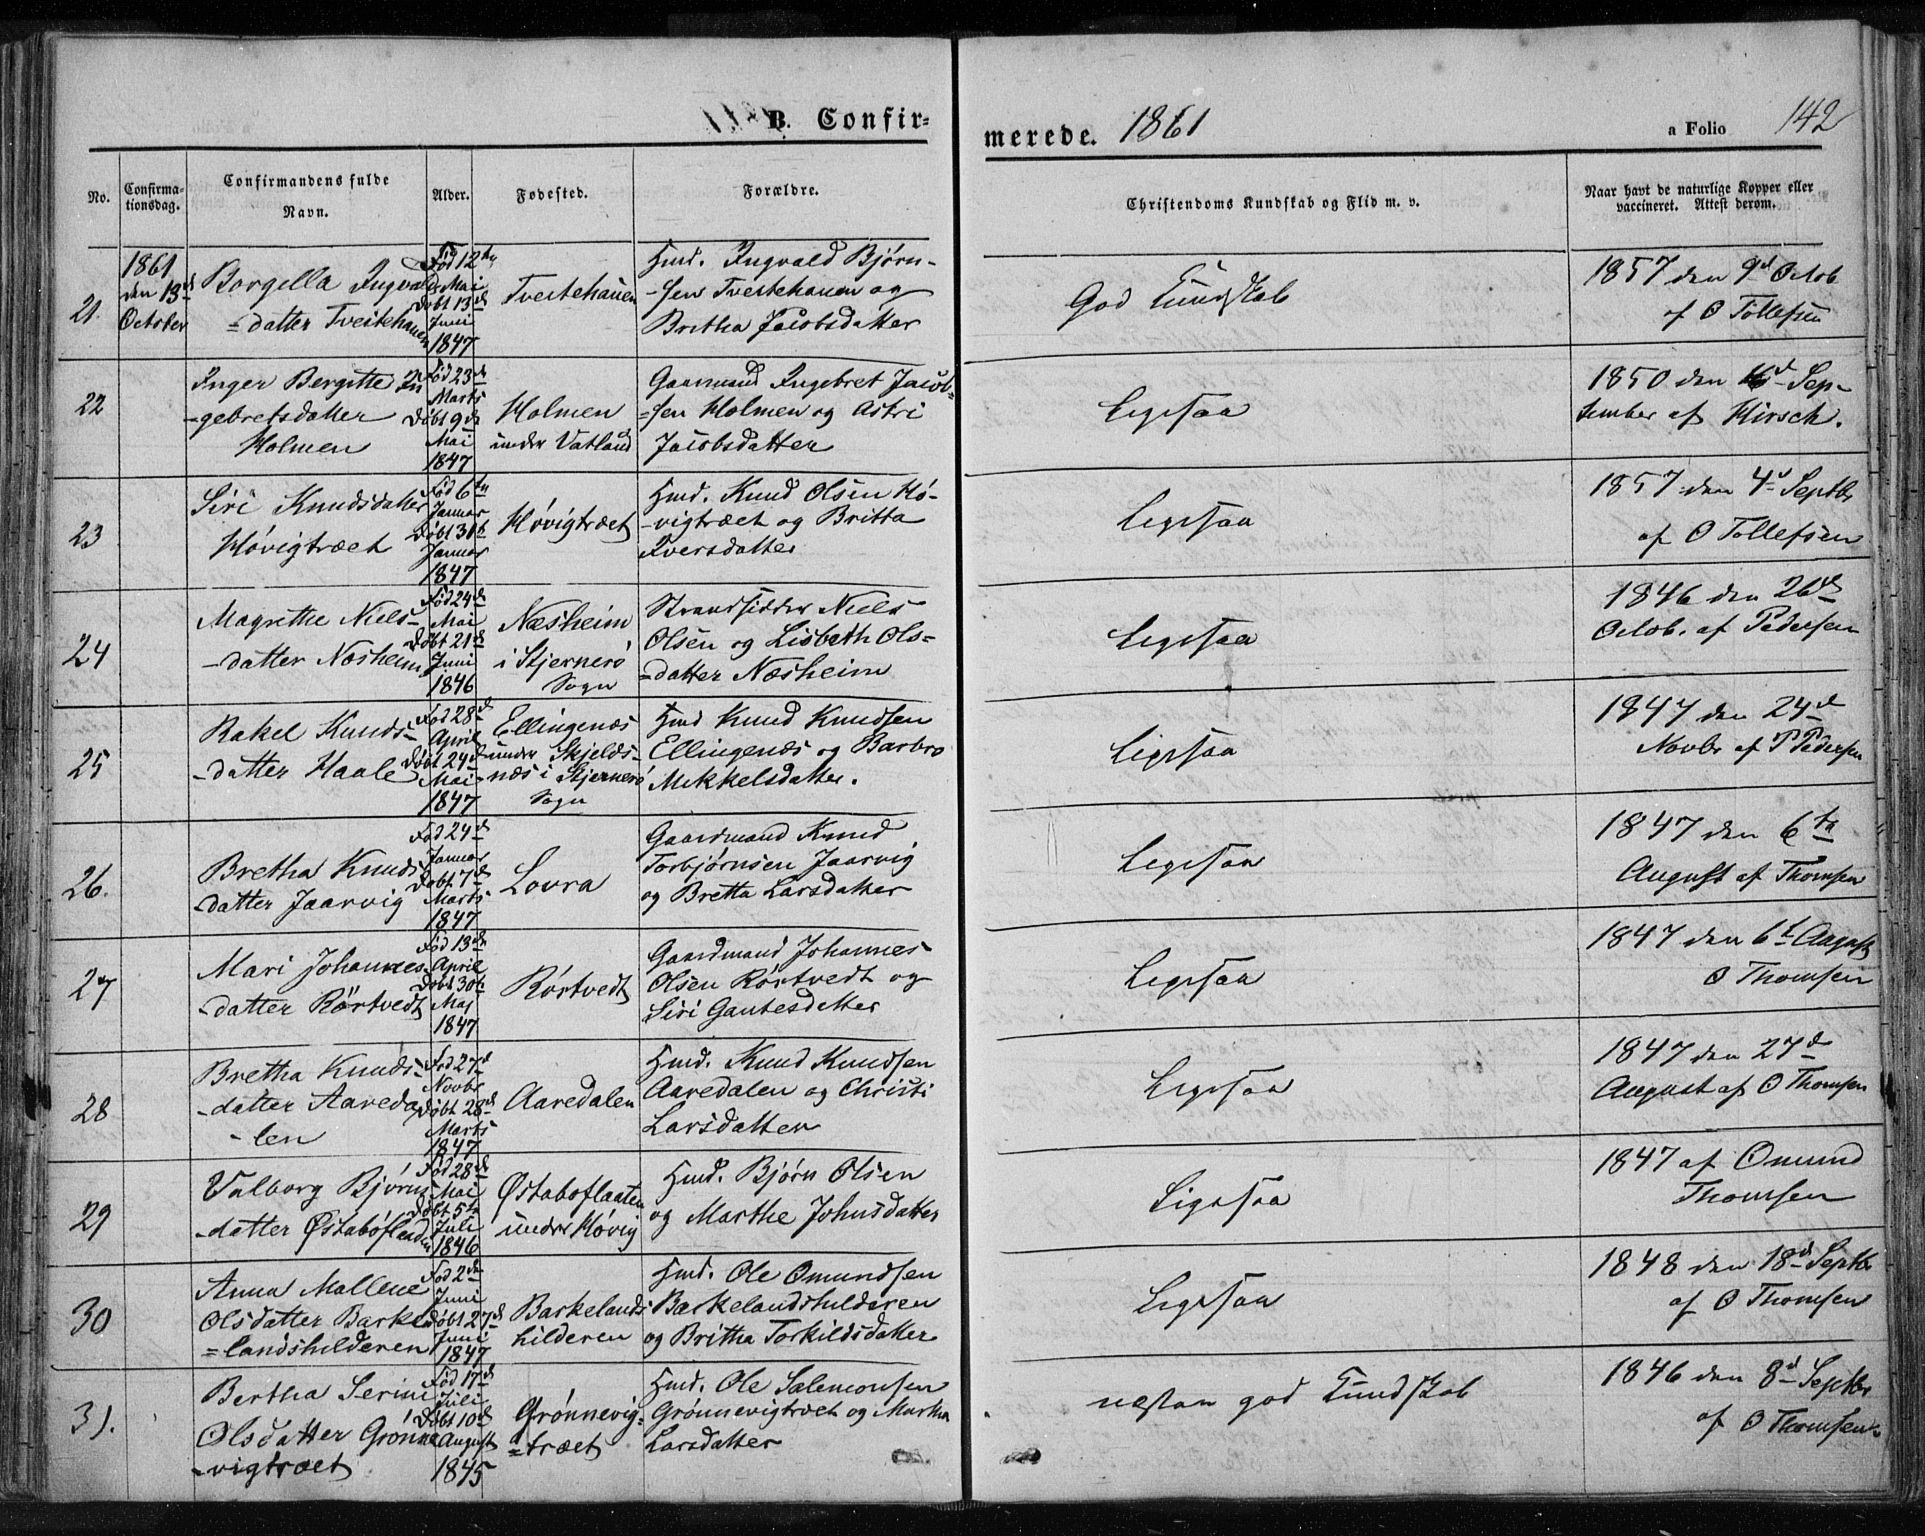 B. Confir=
merede. 1861
a Folio 142
No.
Confirma-
tionsdag.
Confirmandens fulde
Navn.
Alder.
Fødested.
Forældre.
Christendoms Kundskab og Flid m. v.
Naar havt de naturlige Kopper eller
vaccineret. Attest derom.
21.
1861
den 13d
October
Borgilla Ingvalds
=datter Tveitehauen
Fød 12te
Mai
Døbt 13d
Juni
1847
Tveitehauen
Hmd. Ingvald Bjørn-
-sen Tveitehauen og
Britha Jacobsdatter
God Kundskab
1857 den 9d Octob
af O Tollefsen
22
Inger Bergitte In
-gebretsdatter
Holmen
Fød 23d
Marts
Døbt 9de
Mai
1847
Holmen
under Vatland
Gaarmand Ingebret Jacob=
=sen Holmen og Astri
Jacobsdatter
Ligesaa
1850 den Sep-
tember af Hirsch.
23
Siri Knudsdatter
Høvigtræet
Fød 6te
Januar
Døbt 31te
Januar
1847
Høvigtræet
Hmd. Knud Olsen Hø-
-vigtræet og Britta
Iversdatter
Ligesaa
1857 den 4d Septbr
af O Tollefsen
24
Magrethe Niels-
-datter Næsheim
Fød 24d
Mai
Døbt 21d
Juni
1846
Næsheim
i Stjernerö
Sogn
Strandsidder Niels
Olsen og Lisbeth Ols=
=datter Næsheim
Ligesaa
1846 den 26de
Octob. af Pedersen
25
Rakel Knuds-
-datter Haale
Fød 28d
April
Døbt 24d
Mai
1847
Ellingenæs
under Skjelds-
næs i Stjernerö
Sogn
Hmd Knud Knudsen
Ellingenæs og Barbro
Mikkelsdatter.
Ligesaa
1847 den 24d
Novbr af P Pedersen
26.
Bretha Knuds
-datter Jaarvig
Fød 24d
Januar
Døbt 7d
Marts
1847
Lovra
Gaardmand Knud
Torbjørnsen Jaarvig
og Bretta Larsdatter
Ligesaa
1847 den 6te
August af Thomsen
27
Mari Johannes
-datter Rörtvedt
Fød 13de
April
Døbt 30t
Maj
1847
Rörtvedt
Gaardmand Johannes
Olsen Rörtvedt og
Siri Gautesdatter
Ligesaa
1847 den 6t August
O Thomsen
28
Bretha Knuds-
-datter Aareda
-len
Fød 27d
Novbr
Døbt 28d
Marts
1847
Aaredalen
Hmd. Knud Knudsen
Aaredalen og Christi
Larsdatter
Ligesaa
1847 den 27d
August af O Thomsen
29
Valborg Bjørns
-datter Østabøflaaden
Fød 28d
Mai
Døbt 5te
Juli
1846
Østaboflaaten
under Høvig
Hmd. Bjørn Olsen
og Marthe Johnsdatter
Ligesaa
1847 af Omund
Thomsen
30
Anna Mallene
Olsdatter Barke
=landshilderen
Fød 2de
Juni
Døbt 27d
Juni
1847
Barkelands
hilderen
Hmd. Ole Omundsen
Barkelandshilderen
og Britha Torkildsdatter
Ligesaa
1848 den 18d Septbr
af O Thomsen
31.
Bertha Serine
Olsdatter Grønne
-vigtræet
Fød 17d
Juli
Døbt 10d
August
1845
Grønnevig-
=træet
Hmd. Ole Salemonsen
Grønnevigtræet og Martha
Larsdatter
næsten god Kundskab
1846 den 8d Septbr
af O Thomsen